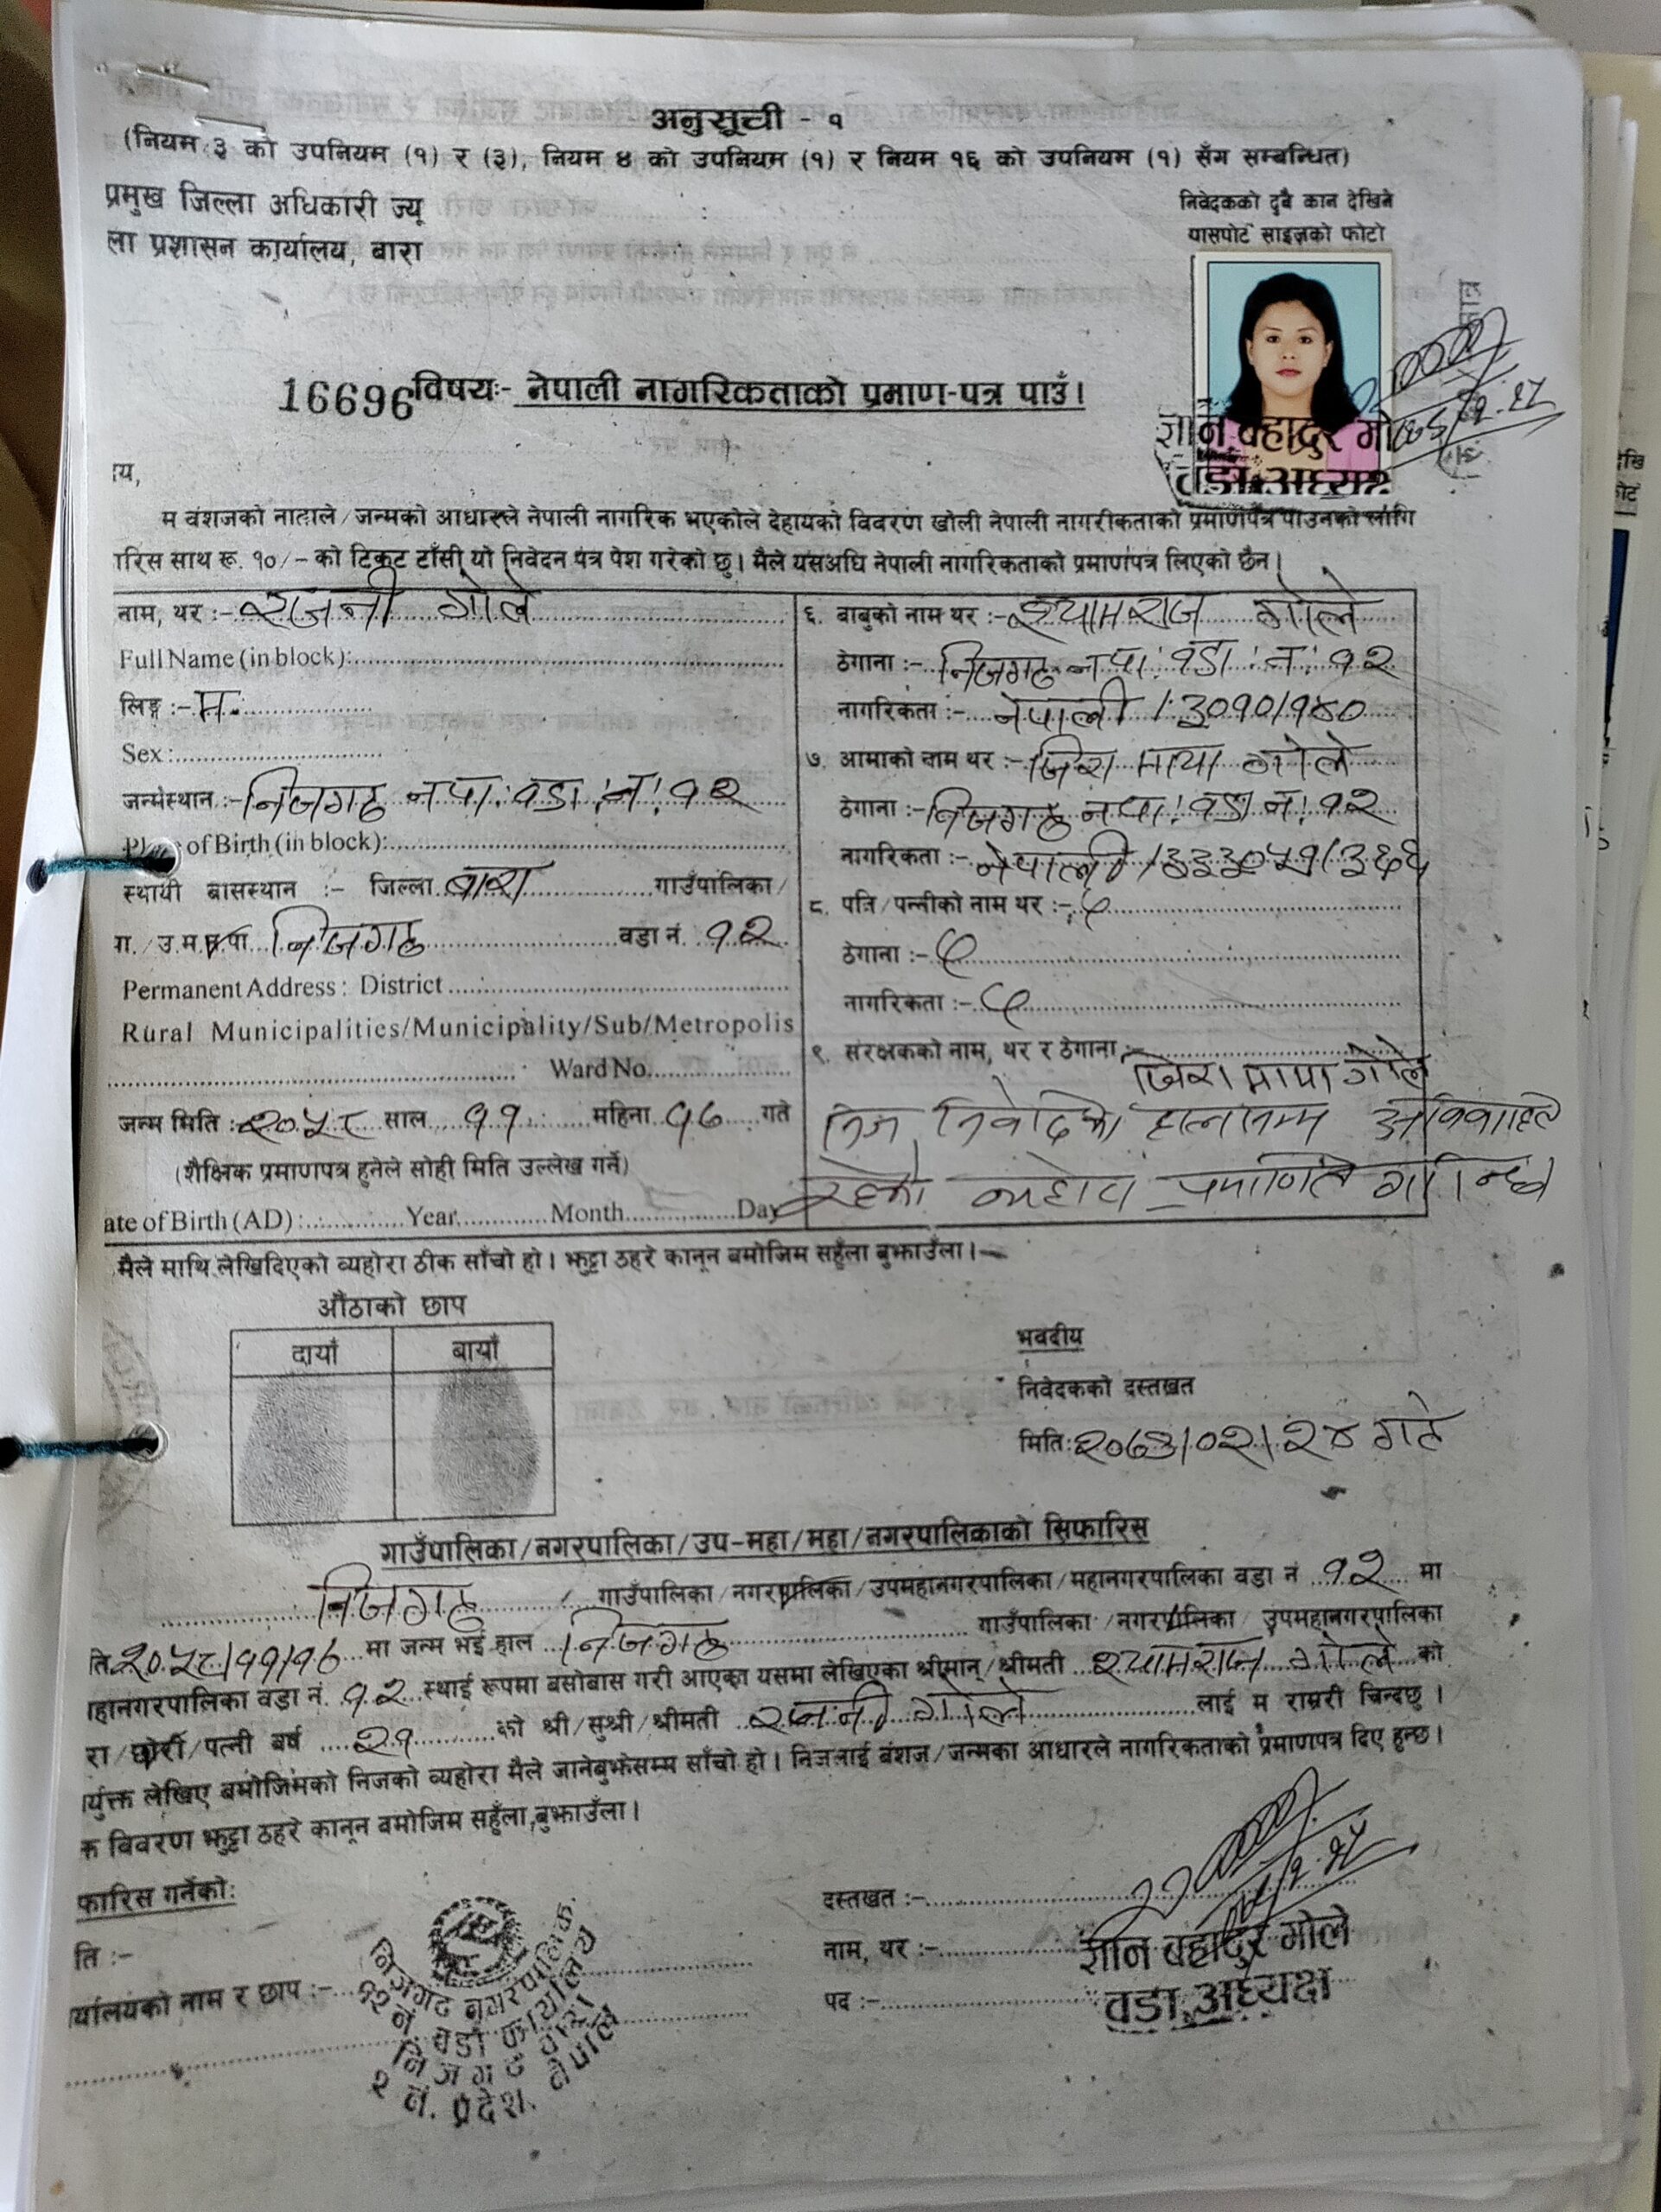 अनुसूची - १
(नियम ३ को उपनियम (१) र (३), नियम ४ को उपनियम (१) र नियम १६ को उपनियम (१) सँग सम्बन्धित)
प्रमुख जिल्ला अधिकारी ज्यू
ला प्रशासन कार्यालय, बारा
निवेदकको दुबै कान देखिने
पासपोर्ट साइजको फोटो
16696 विषयः- नेपाली नागरिकताको प्रमाण-पत्र पाउँ।
ज्ञान बहादुर गो
वडा अध्यक्ष
म वंशजको नाताले/जन्मको आधारले नेपाली नागरिक भएकोले देहायको विवरण खोली नेपाली नागरीकताको प्रमाणपत्र पाउनको लागि
रिस साथ रू. १०/- को टिकट टाँसी यो निवेदन पत्र पेश गरेको छु। मैले यसअघि नेपाली नागरिकताको प्रमाणपत्र लिएको छैन।
नाम, थर :- रजनी गोले
Full Name (in block):
लिङ्ग :- म.
Sex:
जन्मस्थान :- निजगढ न.पा. वडा नं. १२
of Birth (in block):
स्थायी बासस्थान :- जिल्ला बारा गाउँपालिका/
/उ.म.न.पा. निजगढ वडा नं. १२
Permanent Address: District
Rural Municipalities/Municipality/Sub/Metropolis
Ward No.
जन्म मिति : २०५८ साल ११ महिना १६ गते
(शैक्षिक प्रमाणपत्र हुनेले सोही मिति उल्लेख गर्ने)
ate of Birth (AD): Year Month Day
६. बाबुको नाम थर :- श्यामराज गोले
ठेगाना :- निजगढ न.पा. वडा नं. १२
नागरिकता :- नेपाली / ३०१०/१४०
७. आमाको नाम थर :- जिरा माया गोले
ठेगाना :- निजगढ न.पा. वडा नं. १२
नागरिकता :- नेपाली
८. पति/पत्नीको नाम थर :-
ठेगाना :-
नागरिकता :-
९. संरक्षकको नाम, थर र ठेगाना :-
जिरा माया गोले
निज निवेदिका हालसम्म अविवाहित
रहेको व्यहोरा प्रमाणित गरिन्छ
मैले माथि लेखिदिएको व्यहोरा ठीक साँचो हो। झुट्टा ठहरे कानून बमोजिम सहुँला बुझाउँला।
औंठाको छाप
दायाँ बायाँ
भवदीय
निवेदकको दस्तखत
मिति: २०७३/०२/२४ गते
गाउँपालिका/नगरपालिका/उप-महा/महा/नगरपालिकाको सिफारिस
निजगढ गाउँपालिका/नगरपालिका/उपमहानगरपालिका/महानगरपालिका वडा नं १२ मा
ति २०५८/११/१६ मा जन्म भई हाल निजगढ गाउँपालिका/नगरपालिका/उपमहानगरपालिका
हानगरपालिका वडा नं. १२ स्थाई रूपमा बसोबास गरी आएका यसमा लेखिएका श्रीमान्/श्रीमती श्यामराज गोले को
रा/छोरी/पत्नी वर्ष २१ को श्री/सुश्री/श्रीमती रजनी गोले लाई म राम्ररी चिन्दछु।
र्युक्त लेखिए बमोजिमको निजको व्यहोरा मैले जानेबुझेसम्म साँचो हो। निजलाई बंशज/जन्मका आधारले नागरिकताको प्रमाणपत्र दिए हुन्छ।
क विवरण झुट्टा ठहरे कानून बमोजिम सहुँला, बुझाउँला।
फारिस गर्नेको:
ति :-
र्यालयको नाम र छाप :-
निजगढ नगरपालिका
१२ नं. वडा कार्यालय
निजगढ बारा
२ नं. प्रदेश, नेपाल
दस्तखत :-
नाम, थर :- ज्ञान बहादुर गोले
पद :- वडा अध्यक्ष